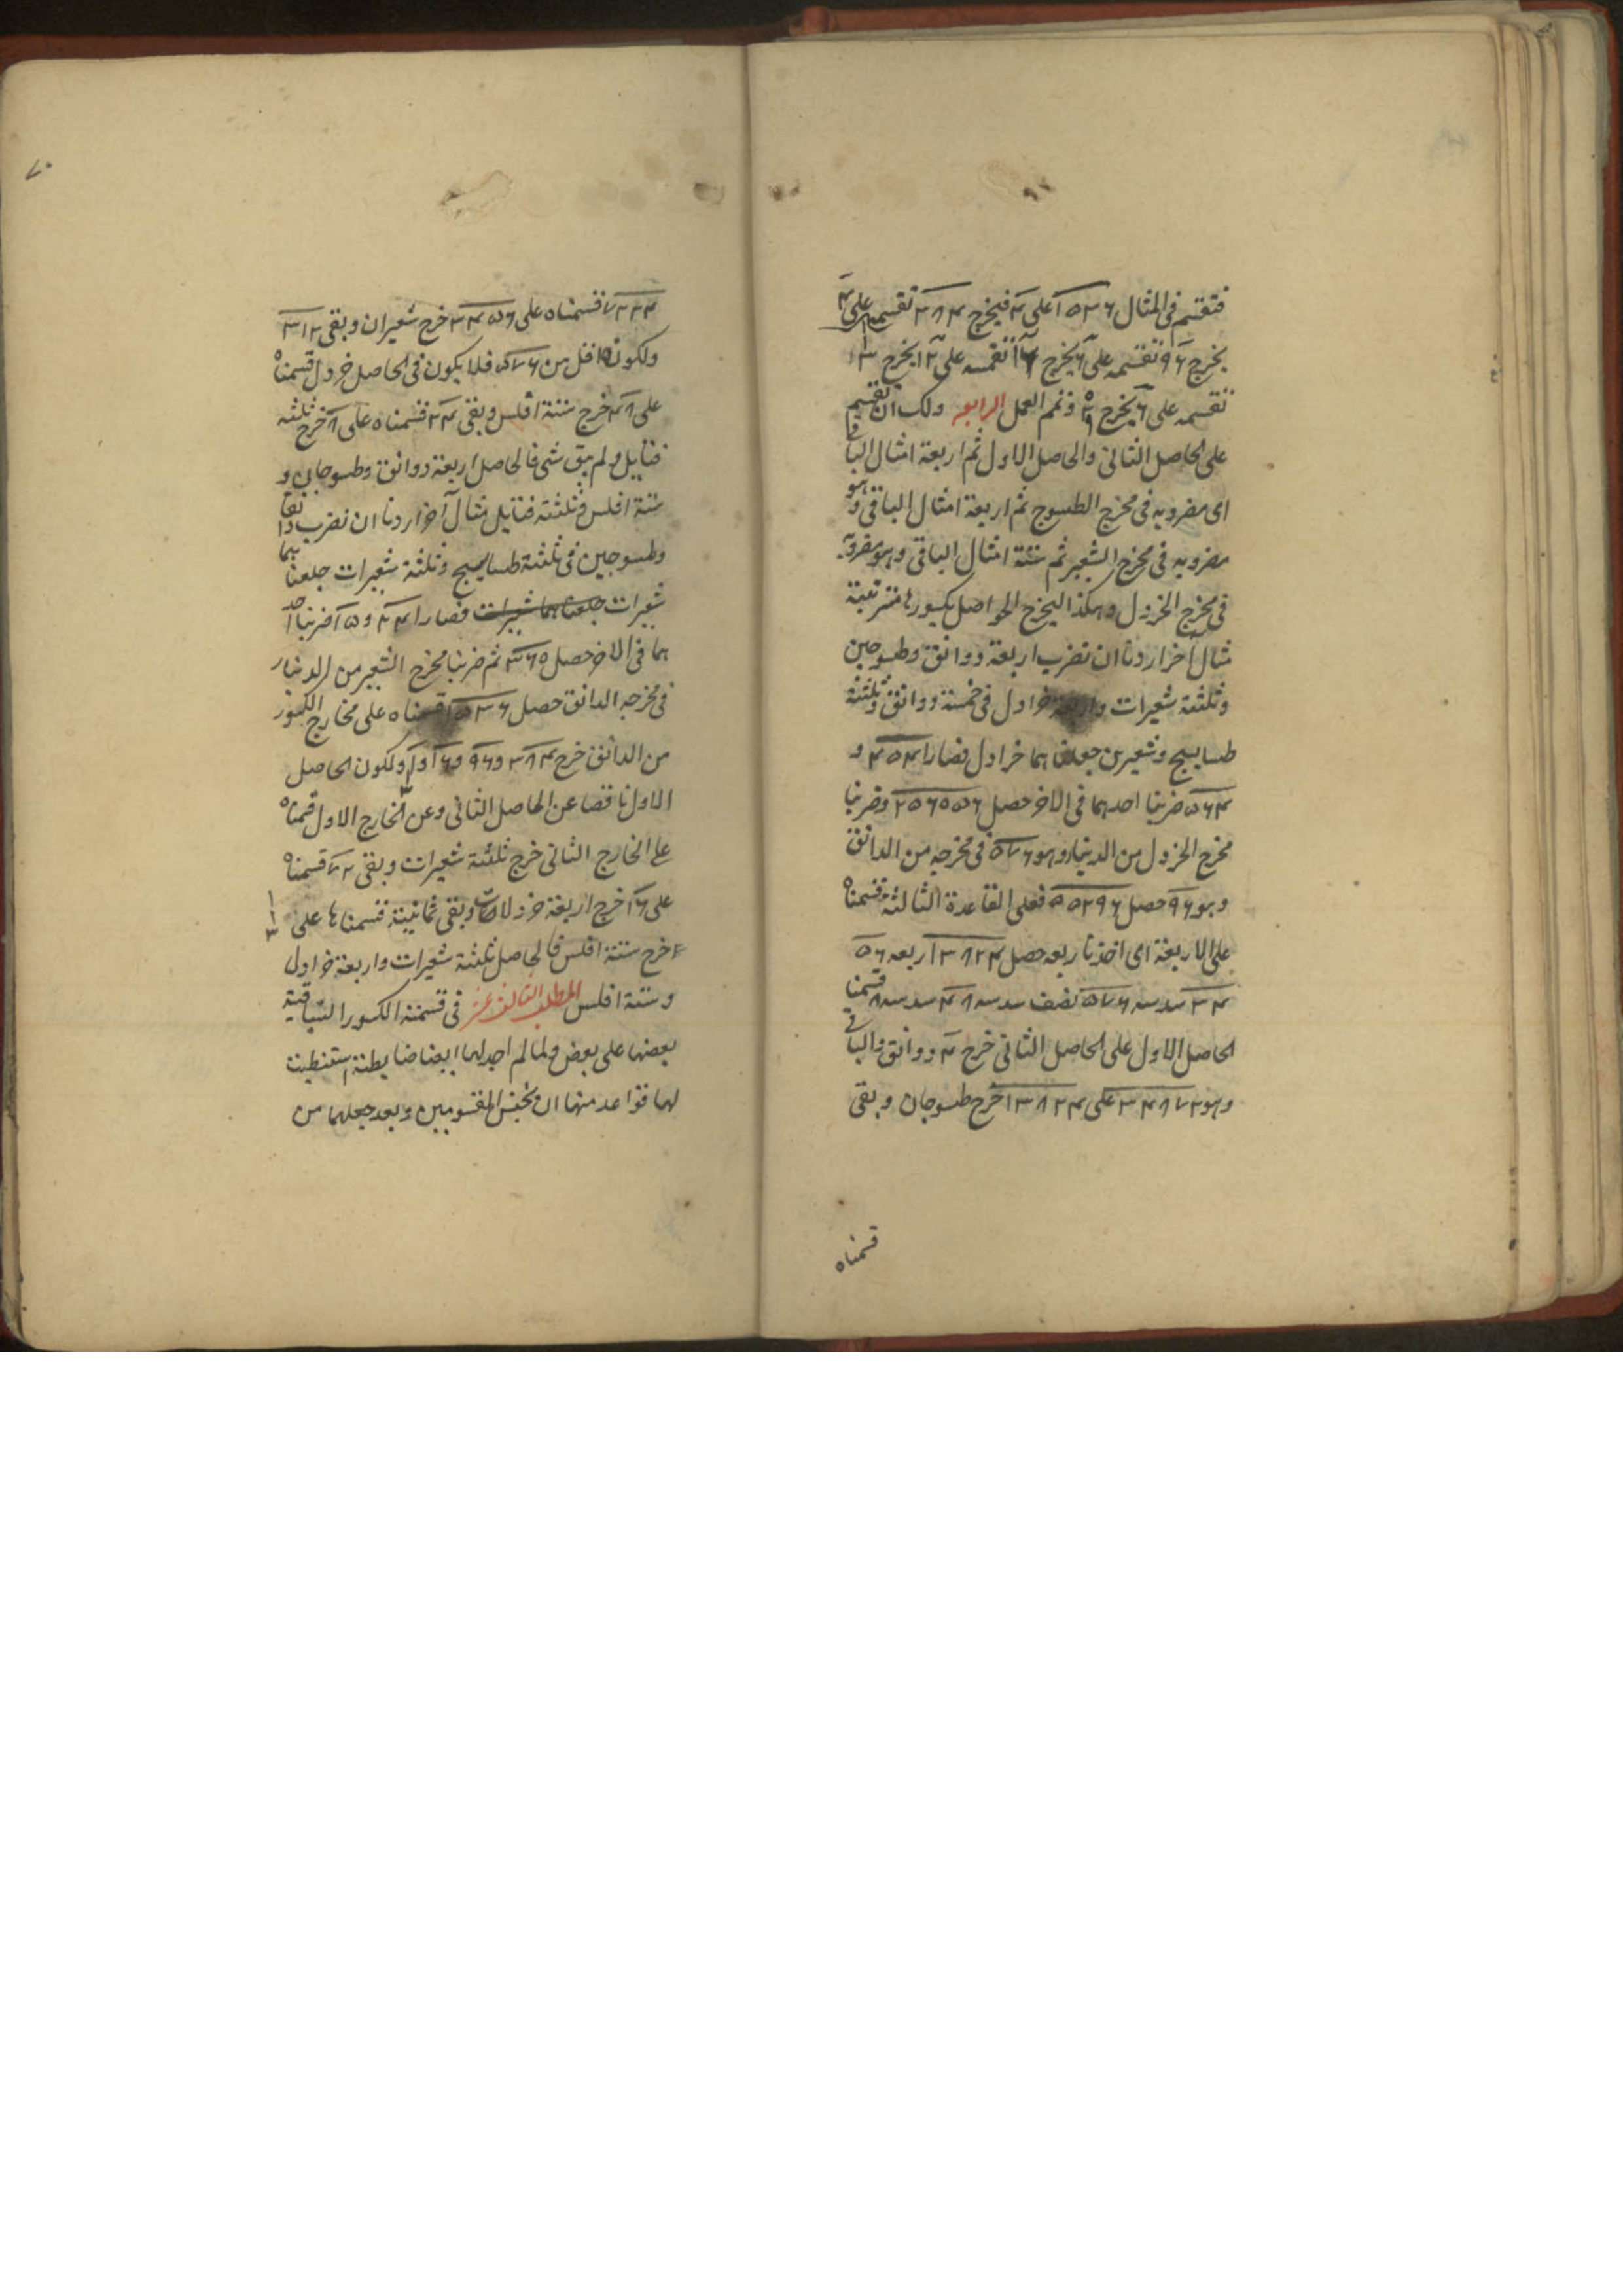 فتقسم فى المثال ١٥٣٦ على ٤ فيخرج ٣٨٤ تقسمه على ٤
يخرج ٩٦ تقسمه على ٦ يخرج ١٦ تقسمه على ١٢ يخرج
تقسمه على ٦ يخرج وتم العمل الرابعه ولك ان تقسم
على الحاصل الثانى والحاصل الاول ثم اربعة امثال الباقى
اى مضروبه فى مخرج الطسوج ثم اربعة امثال الباقى وهو
مضروبه فى مخرج الشعير ثم ستة امثال الباقى وهو مضروبه
فى مخرج الخردل وهكذا ليخرج الحواصل بكسورها مترتبة
مثال آخر اردنا ان نضرب اربعة دوانق وطسوجين
وثلثة شعيرات واربعة خرادل فى خمسة دوانق وثلثة
طساسيج وشعيرين جعلناهما خرادل فصارا ٤٥٤ و
٥٦٤ ضربنا احدهما فى الاخر حصل ٢٥٦٠٥٦ وضربنا
مخرج الخردل من الدينار وهو ٥٧٦ فى مخرجه من الدانق
وهو ٩٦ حصل ٥٥٢٩٦ فعلى القاعدة الثالثة قسمناه
على الاربعة اى اخذنا ربعه حصل ١٣٨٢٤ ربعه ٥٦
٣٤ سدسه ٥٧٦ نصف سدسه ٤٨ سدسه ٨ قسمنا
الحاصل الاول على الحاصل الثانى خرج ٤ دوانق والباقى
وهو ٣٤٨٧٢ على ١٣٨٢٤ خرج طسوجان وبقى
قسمناه
٧٠
٧٢٢٤ قسمناه على ٣٤٥٦ خرج شعيران وبقى ٣١٢
ولكونه اقل من ٥٧٦ فلا يكون فى الحاصل خردل قسمناه
على ٤٨ خرج ستة افلس وبقى ٢٤ قسمناه على ٨ خرج ثلثه
فتايل ولم يبق شى فالحاصل اربعة دوانق وطسوجان و
ستة افلس وثلثة فتايل مثال آخر اردنا ان نضرب دانقا
وطسوجين فى ثلثة طساسيج وثلثة شعيرات جعلناهما
شعيرات جعلناهما شعيرات فصارا ٢٤ و ١٥ ضربنا احد
هما فى الاخر حصل ٣٦٠ ثم ضربنا مخرج الشعير من الدينار
فى مخرجه الدانق حصل ١٥٣٦ قسمناه على مخارج الكسور
من الدانق خرج ٣٨٤ و ٩٦ و ١٦ و ولكون الحاصل
الاول ناقصا عن الحاصل الثانى وعن الخارج الاول قسمناه
على الخارج الثانى خرج ثلثة شعيرات وبقى ٧٢ قسمناه
على ١٦ خرج اربعة خردلات وبقى ثمانية قسمناها على ١
خرج ستة افلس فالحاصل ثلثة شعيرات واربعة خرادل
وستة افلس المطلب الثالث عشر فى قسمة الكسور السياقية
بعضها على بعض ولما لم اجد لها ايضا ضابطة استنبطت
لها قواعد منها ان تجنس المقسومين وبعد جعلهما من